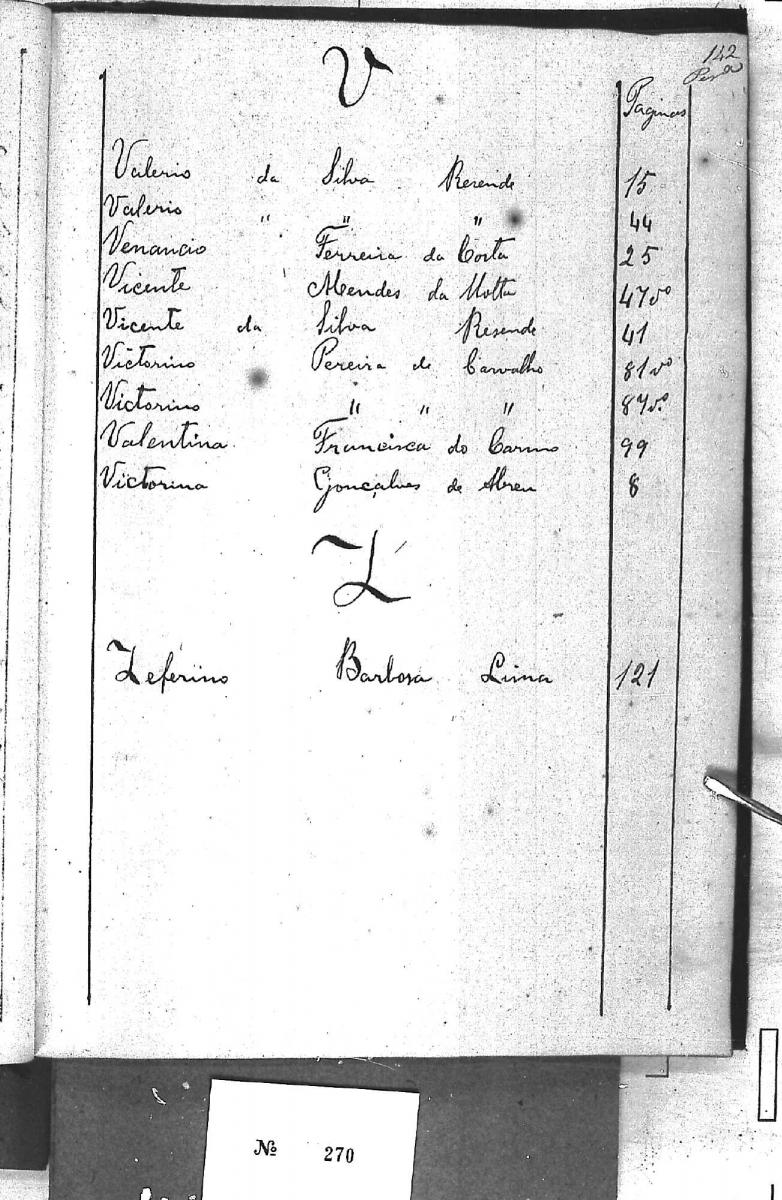 142
V
Paginas
Valerio da Silva Resende 15
Valerio " " " 44
Venancio Ferreira da Costa 25
Vicente Mendes da Motta 47vº
Vicente da Silva Resende 41
Victorino Pereira de Carvalho 81vº
Victorino " " " 87vº
Valentina Francisca do Carmo 99
Victorina Gonçalves de Abreu 8
Z
Zeferino Barbosa Lima 121
Nº 270